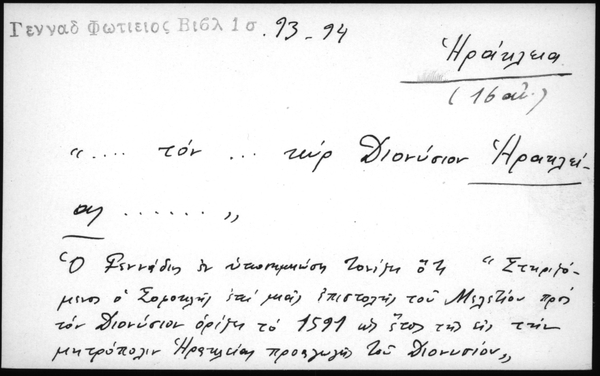 Γενναδ Φωτιειος Βιβλ 1 σ .93-94
Ἡράκλεια
(16 αἰ.)
“.... τόν ... κύρ Διονύσιον Ἡρακλεί-
ας ......„
Ὁ Γεννάδιος ἐν ὑποσημειώσῃ τονίζει ὅτι “Στηριζό-
μενος ὁ ἐπί μιᾶς ἐπιστολῆς τοῦ Μελετίου πρός
τόν Διονύσιον ὁρίζει τό 1591 ὡς ἔτος τῆς εἰς τήν
μητρόπολιν Ἡρακλείας προαγωγῆς τοῦ Διονυσίου„